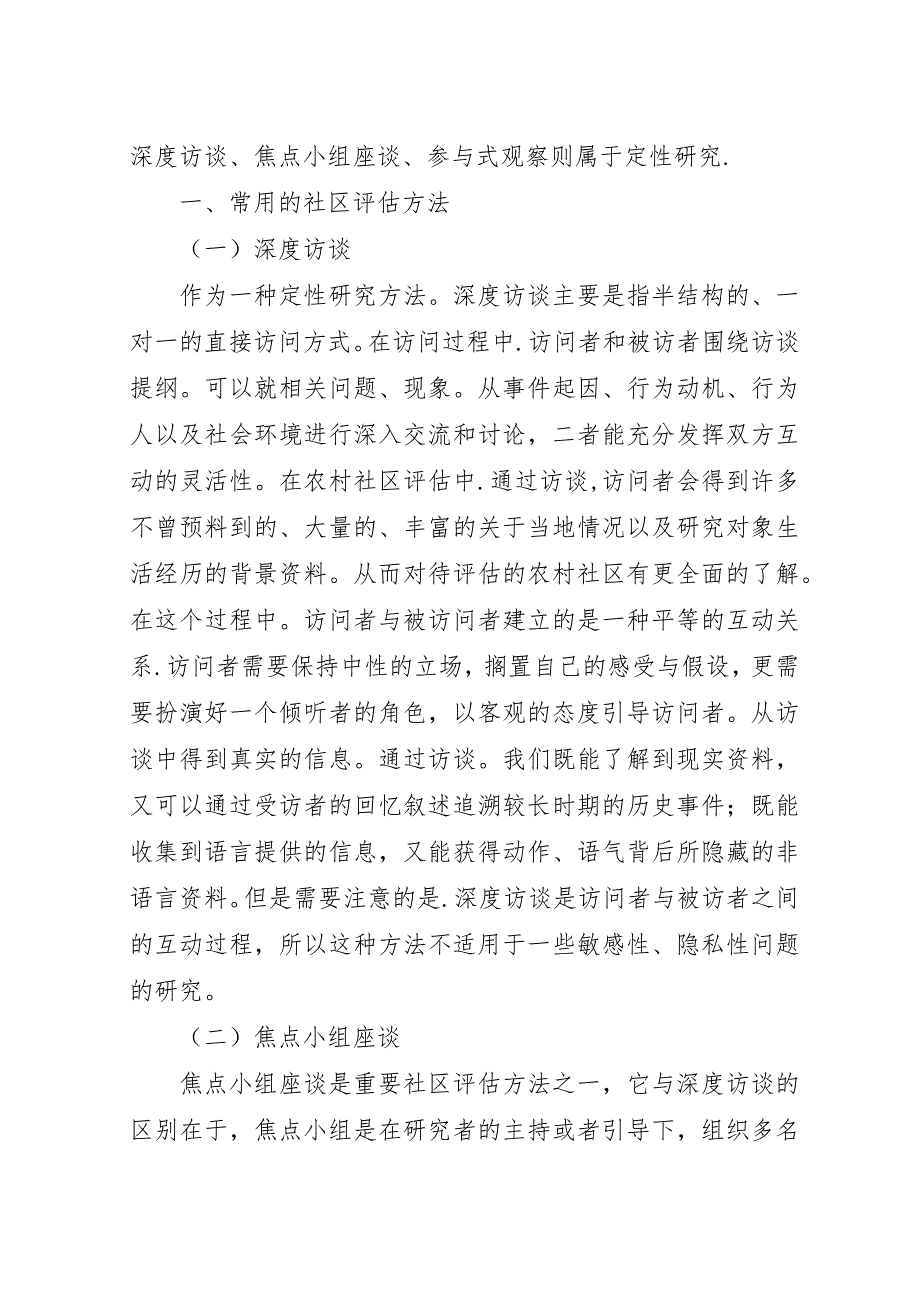 深度访谈、焦点小组座谈、参与式观察则属于定性研究.
一、常用的社区评估方法
（一）深度访谈
作为一种定性研究方法。深度访谈主要是指半结构的、一
对一的直接访问方式。在访问过程中.访问者和被访者围绕访谈
提纲。可以就相关问题、现象。从事件起因、行为动机、行为
人以及社会环境进行深入交流和讨论，二者能充分发挥双方互
动的灵活性。在农村社区评估中.通过访谈,访问者会得到许多
不曾预料到的、大量的、丰富的关于当地情况以及研究对象生
活经历的背景资料。从而对待评估的农村社区有更全面的了解。
在这个过程中。访问者与被访问者建立的是一种平等的互动关
系.访问者需要保持中性的立场，搁置自己的感受与假设，更需
要扮演好一个倾听者的角色，以客观的态度引导访问者。从访
谈中得到真实的信息。通过访谈。我们既能了解到现实资料，
又可以通过受访者的回忆叙述追溯较长时期的历史事件；既能
收集到语言提供的信息，又能获得动作、语气背后所隐藏的非
语言资料。但是需要注意的是.深度访谈是访问者与被访者之间
的互动过程，所以这种方法不适用于一些敏感性、隐私性问题
的研究。
（二）焦点小组座谈
焦点小组座谈是重要社区评估方法之一，它与深度访谈的
区别在于，焦点小组是在研究者的主持或者引导下，组织多名